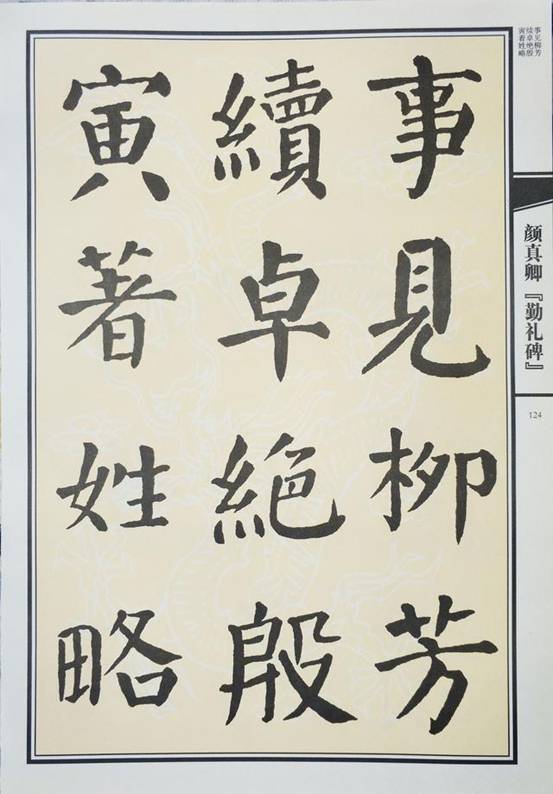 事见柳芳
续卓绝殷
寅着姓略
颜真卿『勤礼碑』
124
事見柳芳
續卓絕殷
寅著姓略